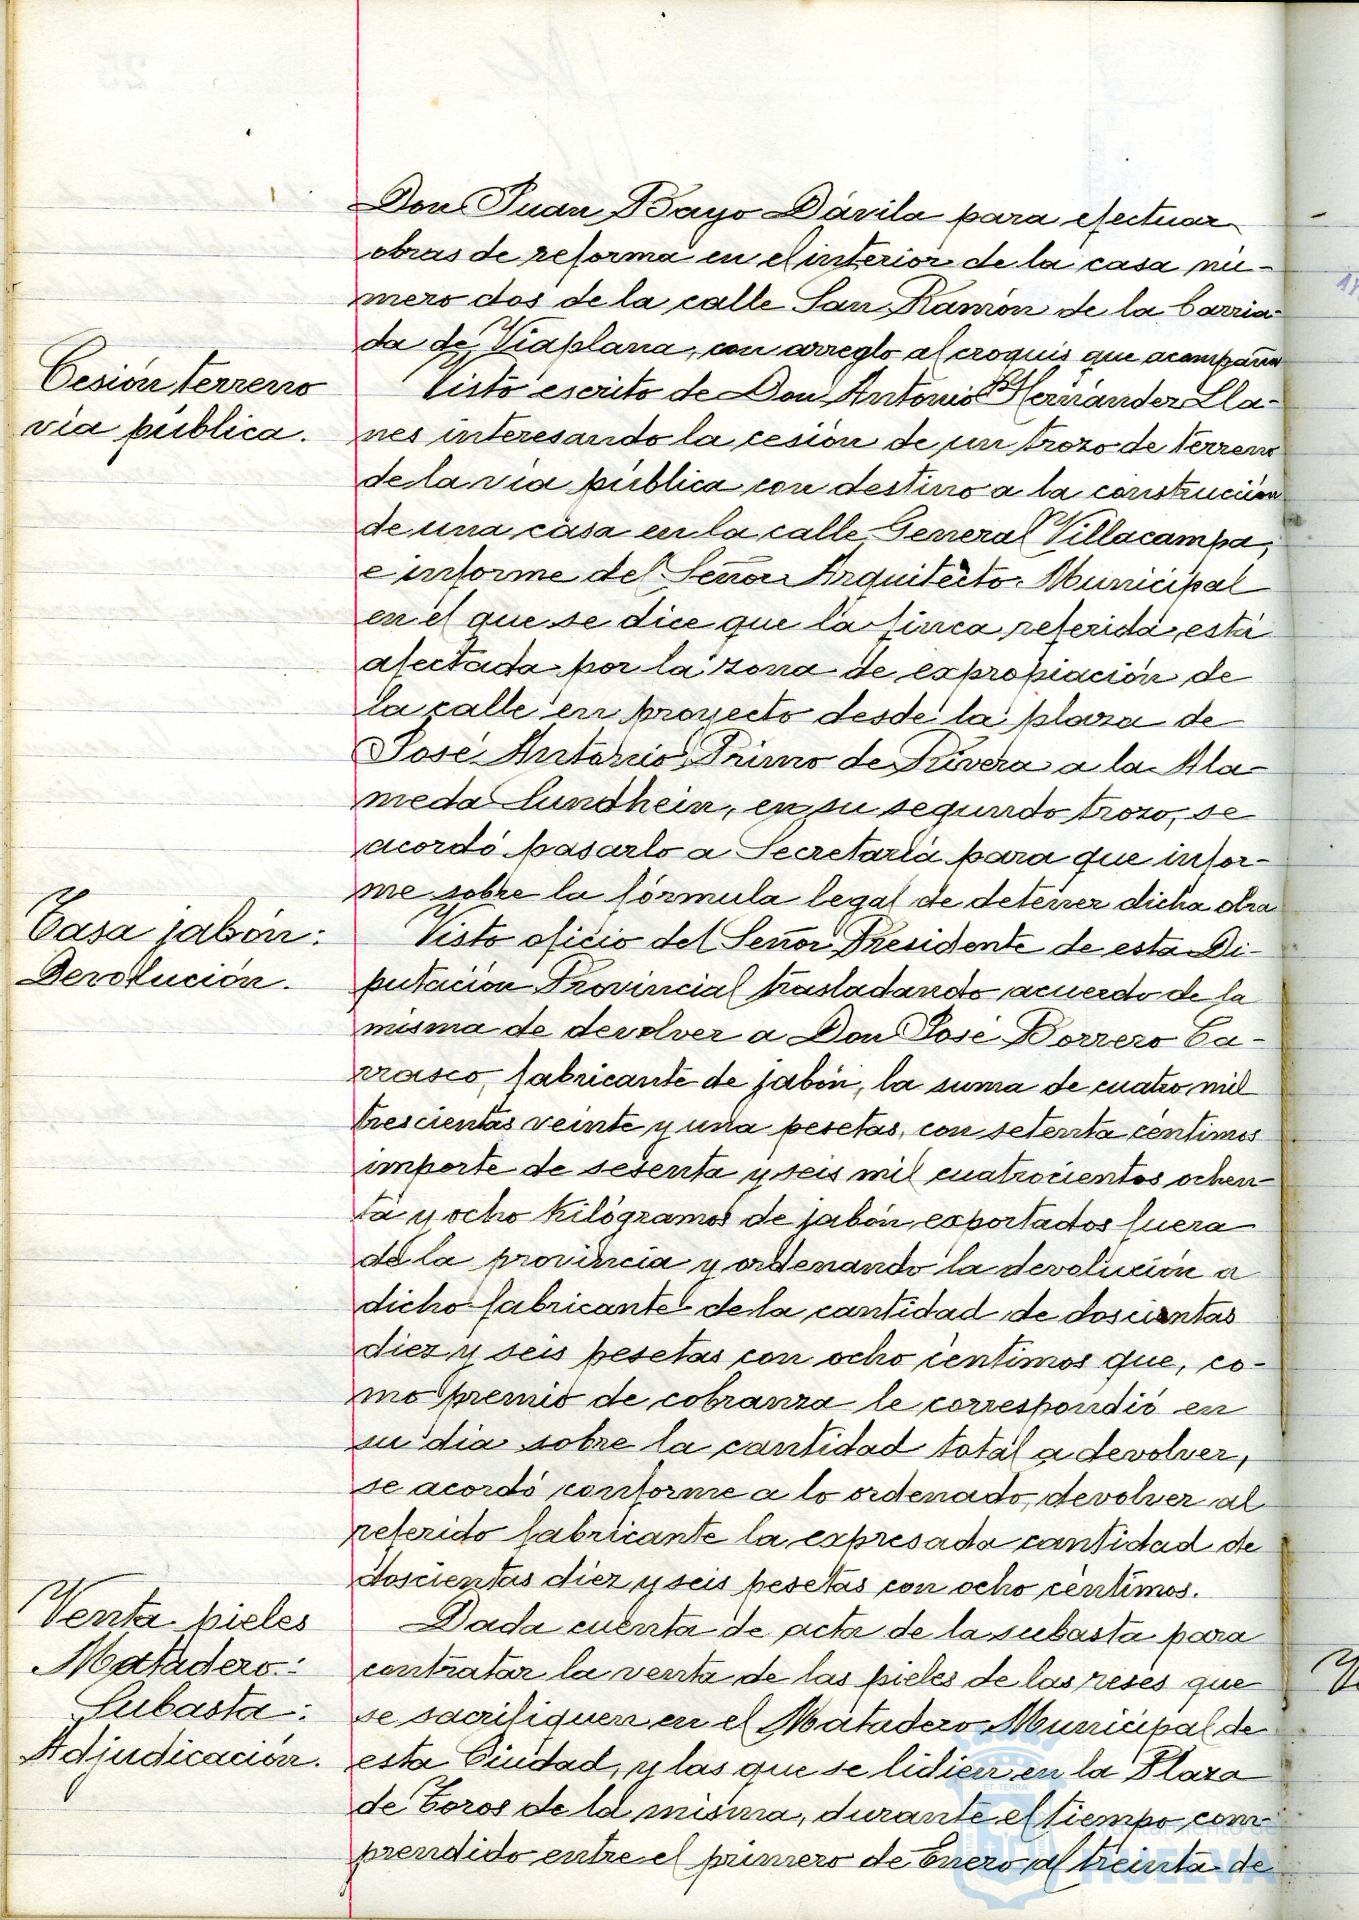 Don Juan Bayo Dávila para efectuar
obras de reforma en el interior de la casa nú-
mero dos de la calle San Ramón de la barria-
da de Viaplana, con arreglo al croquis que acompaña
Cesión terreno
vía pública.
Visto escrito de Don Antonio Hernández Lla-
nes interesando la cesión de un trozo de terreno
de la vía pública con destino a la construción
de una casa en la calle General Villacampa,
e informe del Señor Arquitecto Municipal
en el que se dice que la finca referida, está
afectada por la zona de expropiación de
la calle en proyecto desde la plaza de
José Antonio Primo de Rivera a la Ala-
meda Sundhein, en su segundo trozo, se
acordó pasarlo a Secretaría para que infor-
me sobre la fórmula legal de detener dicha obra
Tasa jabón:
Devolución.
Visto oficio del Señor Presidente de esta Di-
putación Provincial trasladando acuerdo de la
misma de devolver a Don José Borrero Ca-
rrasco, fabricante de jabón, la suma de cuatro mil
trescientas veinte y una pesetas, con setenta céntimos
importe de sesenta y seis mil cuatrocientos ochen-
ta y ocho kilógramos de jabón exportados fuera
de la provincia y ordenando la devolución a
dicho fabricante de la cantidad de doscientas
diez y seis pesetas con ocho céntimos que, co-
mo premio de cobranza le correspondió en
su día sobre la cantidad total a devolver,
se acordó conforme a lo ordenado, devolver al
referido fabricante la expresada cantidad de
doscientas diez y seis pesetas con ocho céntimos.
Venta pieles
Matadero:
Subasta:
Adjudicación.
Dada cuenta de acta de la subasta para
contratar la venta de las pieles de las reses que
se sacrifiquen en el Matadero Municipal de
esta Ciudad, y las que se lidien en la Plaza
de Toros de la misma, durante el tiempo com-
prendido entre el primero de Enero al treinta de
Ayuntamiento de
HUELVA